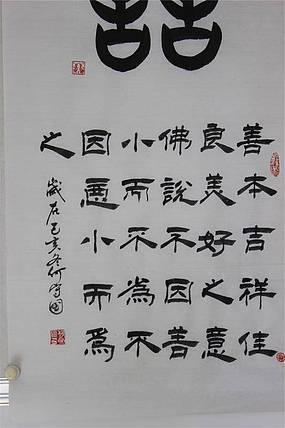 善本吉祥佳
良美好之意
佛說不因善
小而不為不
因惡小而爲
之
歲在己亥冬何